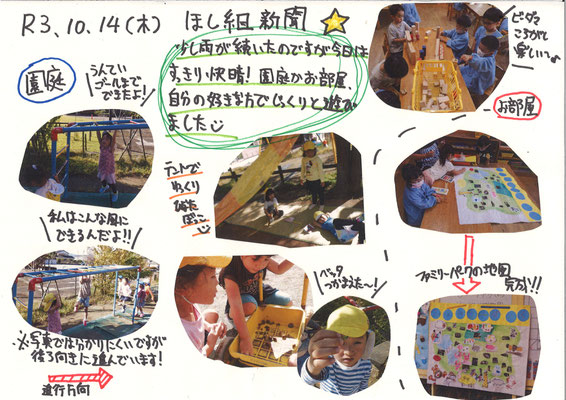 R3.10.14(木) ほし組新聞
少し雨が続いたのですが今日は
すっきり快晴!園庭かお部屋、
自分の好きな方でじっくりと遊び
ました
園庭
うんてい
ゴールまで
できたよ!
私はこんな風に
できるんだよ!!
※写真では分かりにくいですが
後ろ向きに進んでいます!
進行方向
テントで
ゆっくり
ひなた
ぼっこ
バッタ
つかまえた〜!
ビー玉
ころがし
楽しい〜
お部屋
ファミリーパークの地図
完成!!